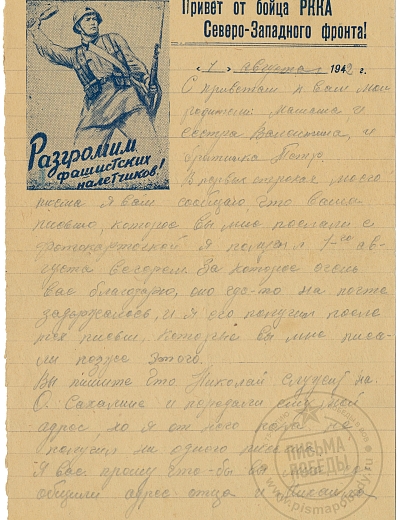 Привет от бойца РККА
Северо-Западного фронта!
Разгромим
фашистских
налетчиков!
« 7 » августа 1942 г.
С приветом к вам мои
родители: мамаша и
сестра Валентина, и
братишка Петро.
В первых строках моего
письма я вам сообщаю что ваше
письмо, которое вы мне послали с
фотокарточкой я получил 7-го ав-
густа вечером. За которое очень
вас благодарю, оно где-то на почте
задержалось, и я его получил после
тех писем, которые вы мне писа-
ли позже этого.
Вы пишите что Николай служит на
О. Сахалине и передали ему мой
адрес но я от него пока не
получил ни одного письма.
Я вас прошу что-бы вы мне со-
общили адрес отца и
ПИСЬМА
ПОБЕДЫ
www.pismapobedy.ru